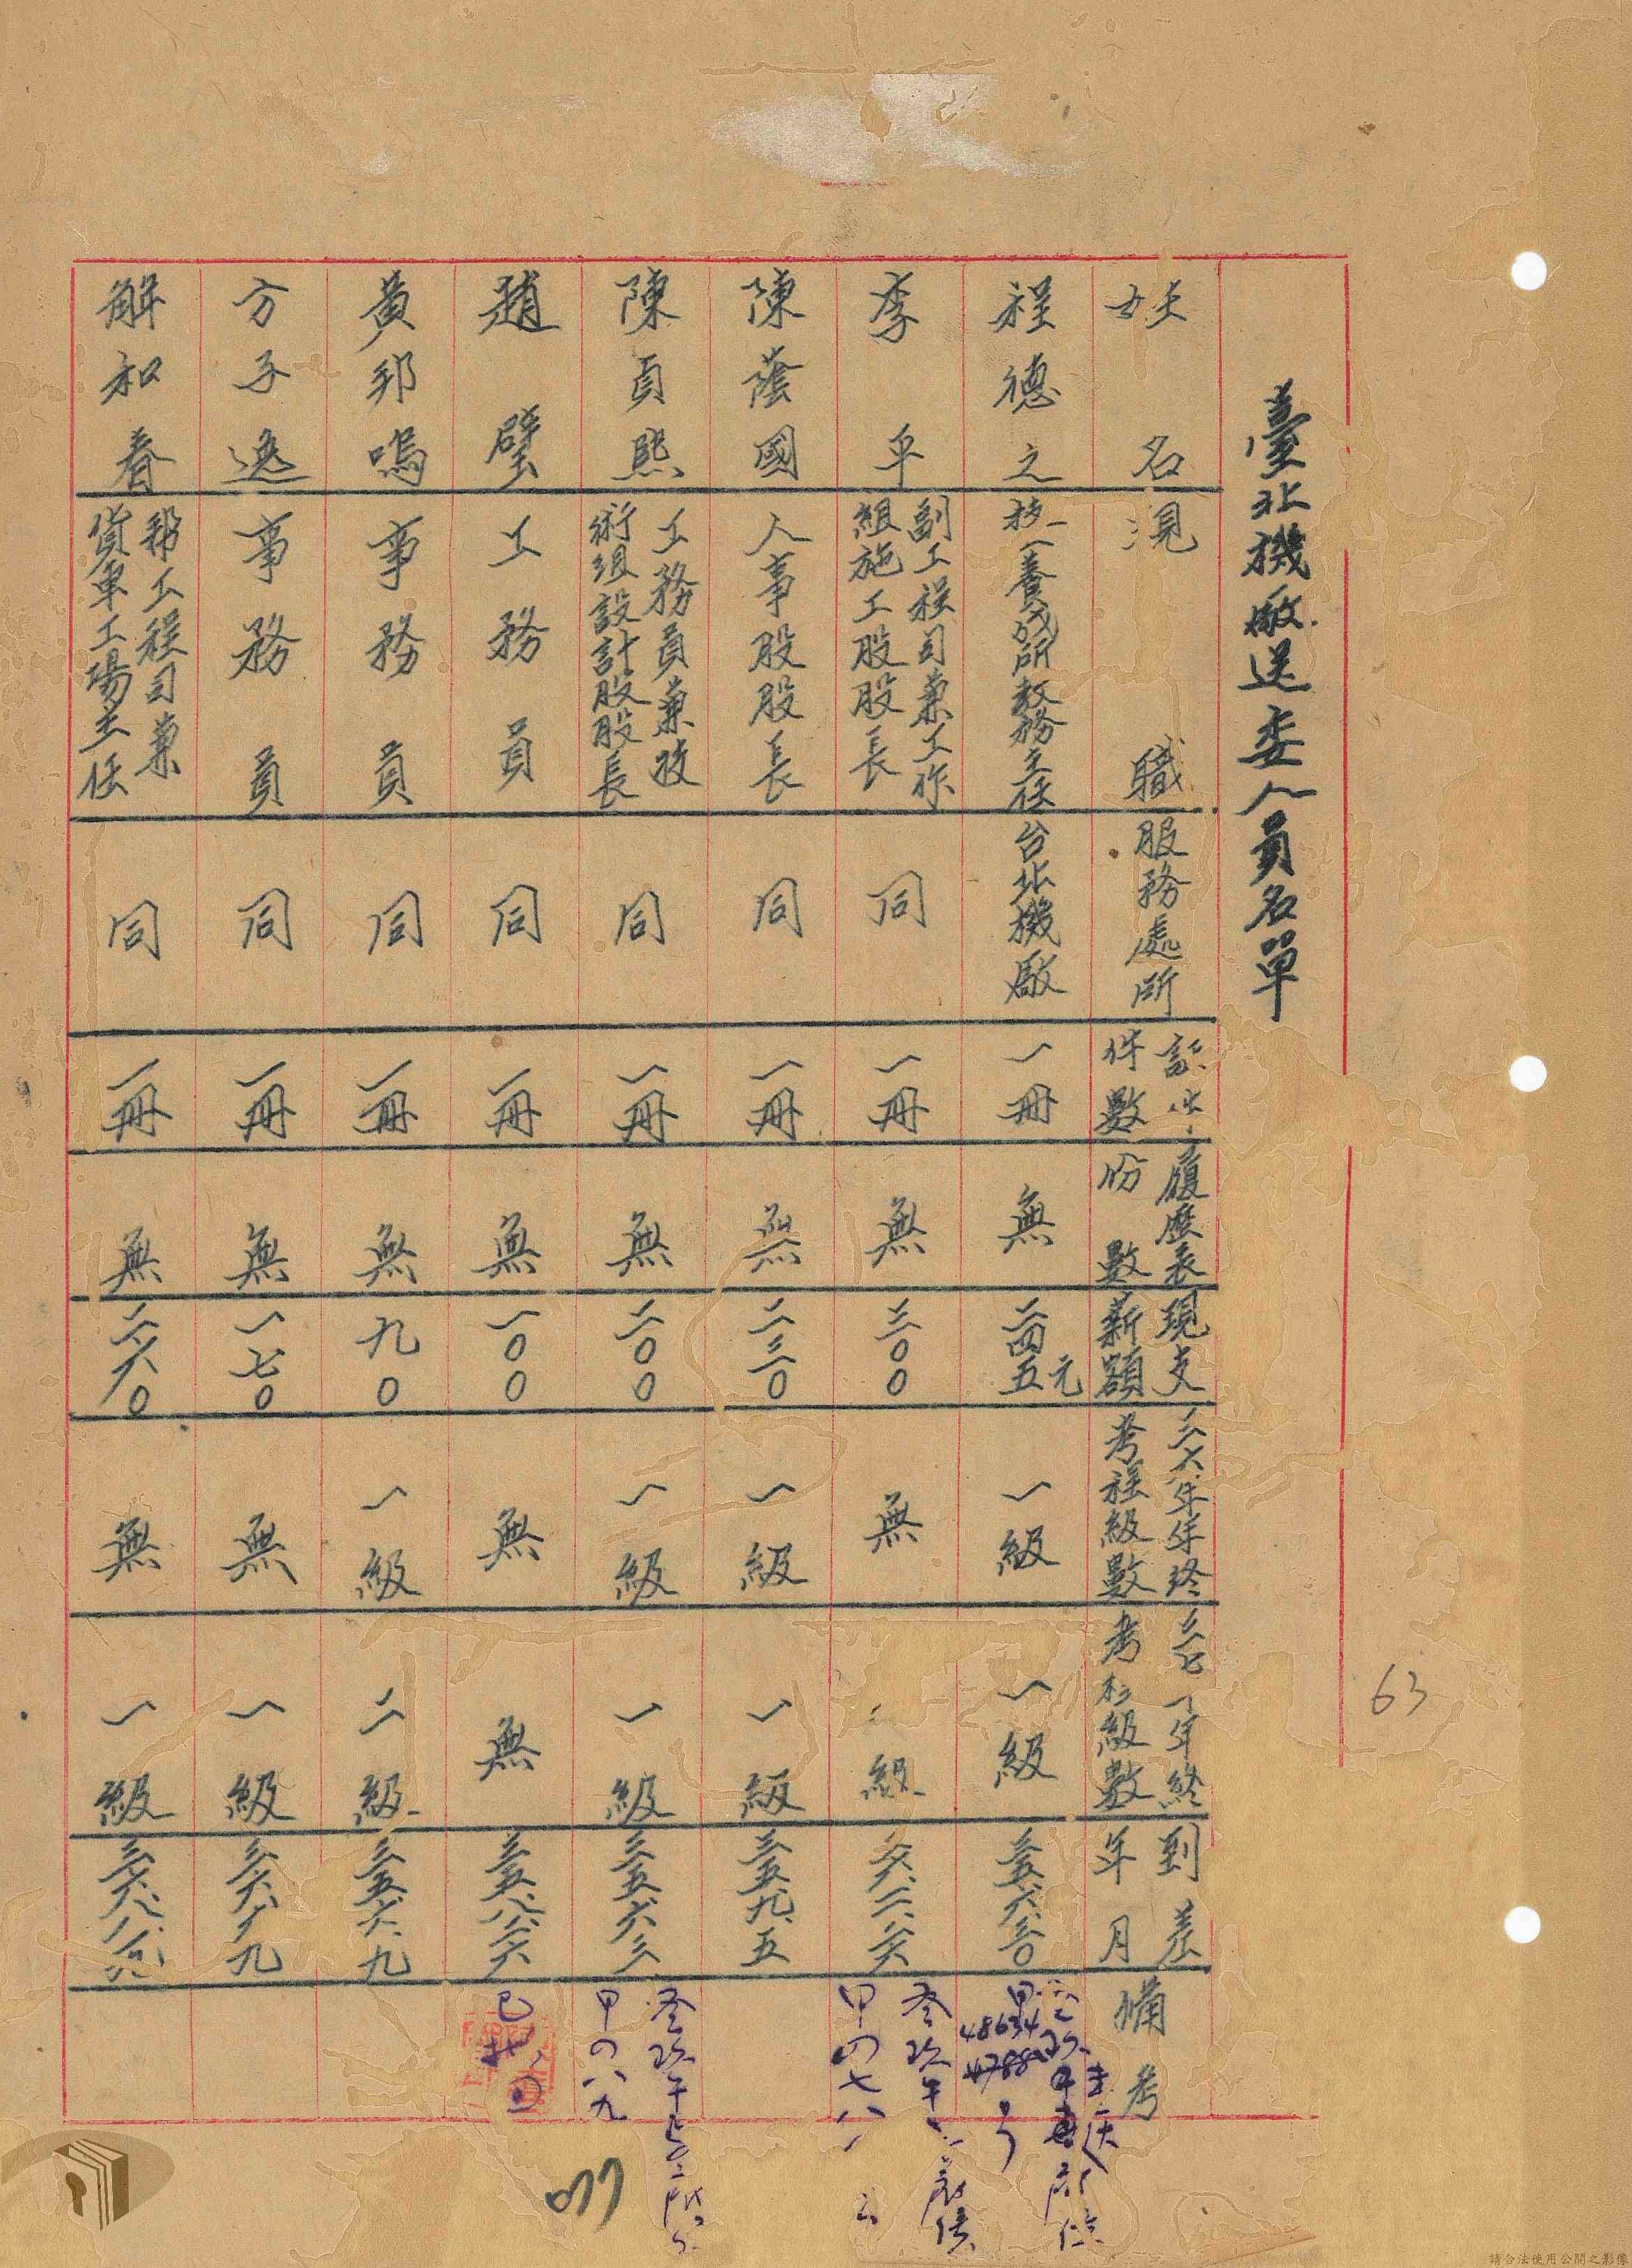 臺北機廠送委人員名單
姓名
現職
服務處所
証件
件數
履歷表
份數
現支
薪額
三六年年終
考核級數
三七年年終
考核級數
到差
年月
備考
程德之
技一養成所教務主任
台北機廠
一冊
無
二四五元
一級
一級
三五、六、二〇
李平
副工程司兼工作
組施工股股長
同
一冊
無
三〇〇
無
級
陳蔭國
人事股股長
同
一冊
無
二二〇
一級
一級
三五、九、五
陳貞熙
工務員兼技
術組設計股股長
同
一冊
無
二〇〇
一級
一級
三五、六、三
趙璧
工務員
同
一冊
無
一〇〇
無
無
三五、八、二六
黃邦鳴
事務員
同
一冊
無
九〇
一級
二級
三五、六、九
方子逸
事務員
同
一冊
無
一七〇
無
一級
解和春
幫工程司兼
貨車工場主任
同
一冊
無
二六〇
無
一級
甲四七八
甲四八九
63
請合法使用公開之影像